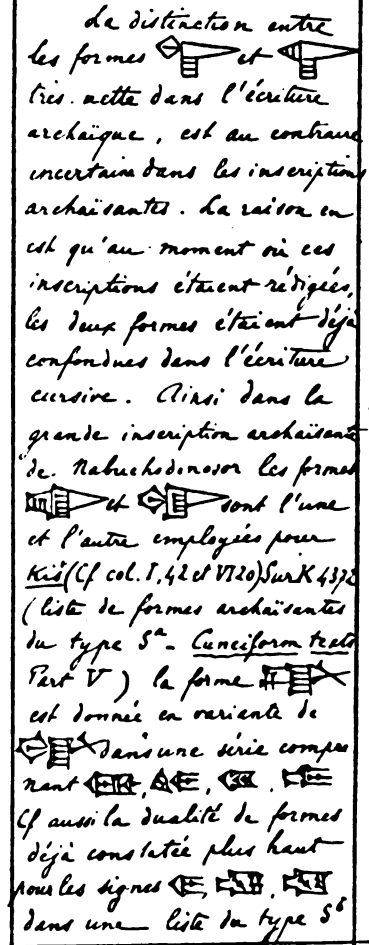 La distinction entre
les formes et
très nette dans l'écriture
archaïque, est au contraire
incertaine dans les inscriptions
archaïsantes. La raison en
est qu'au moment où ces
inscriptions étaient rédigées,
les deux formes étaient déjà
confondues dans l'écriture
cursive. Ainsi dans la
grande inscription archaïsante
de Nabuchodonosor les formes
et sont l'une
et l'autre employées pour
Kiš (Cf col. I, 42 et VI 20) Sur K 4372
(liste de formes archaïsantes
du type Sᵃ - Cuneiform texts
Part V) la forme
est donnée en variante de
dans une série compre
nant
Cf aussi la dualité de formes
déjà constatée plus haut
pour les signes
dans une liste du type Sᵇ